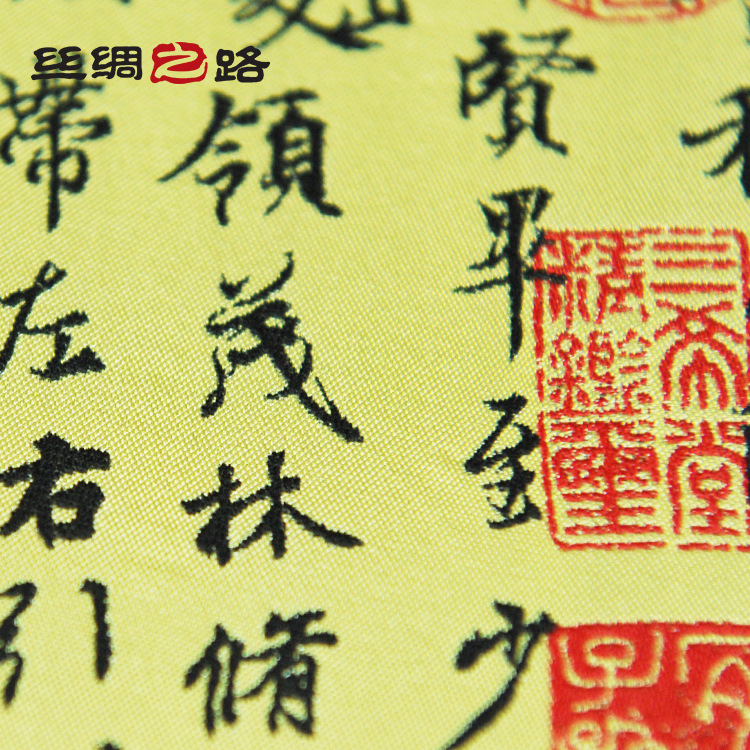 丝绸之路
三希堂
精鑑璽
賢畢至少
領茂林脩
帶左右引